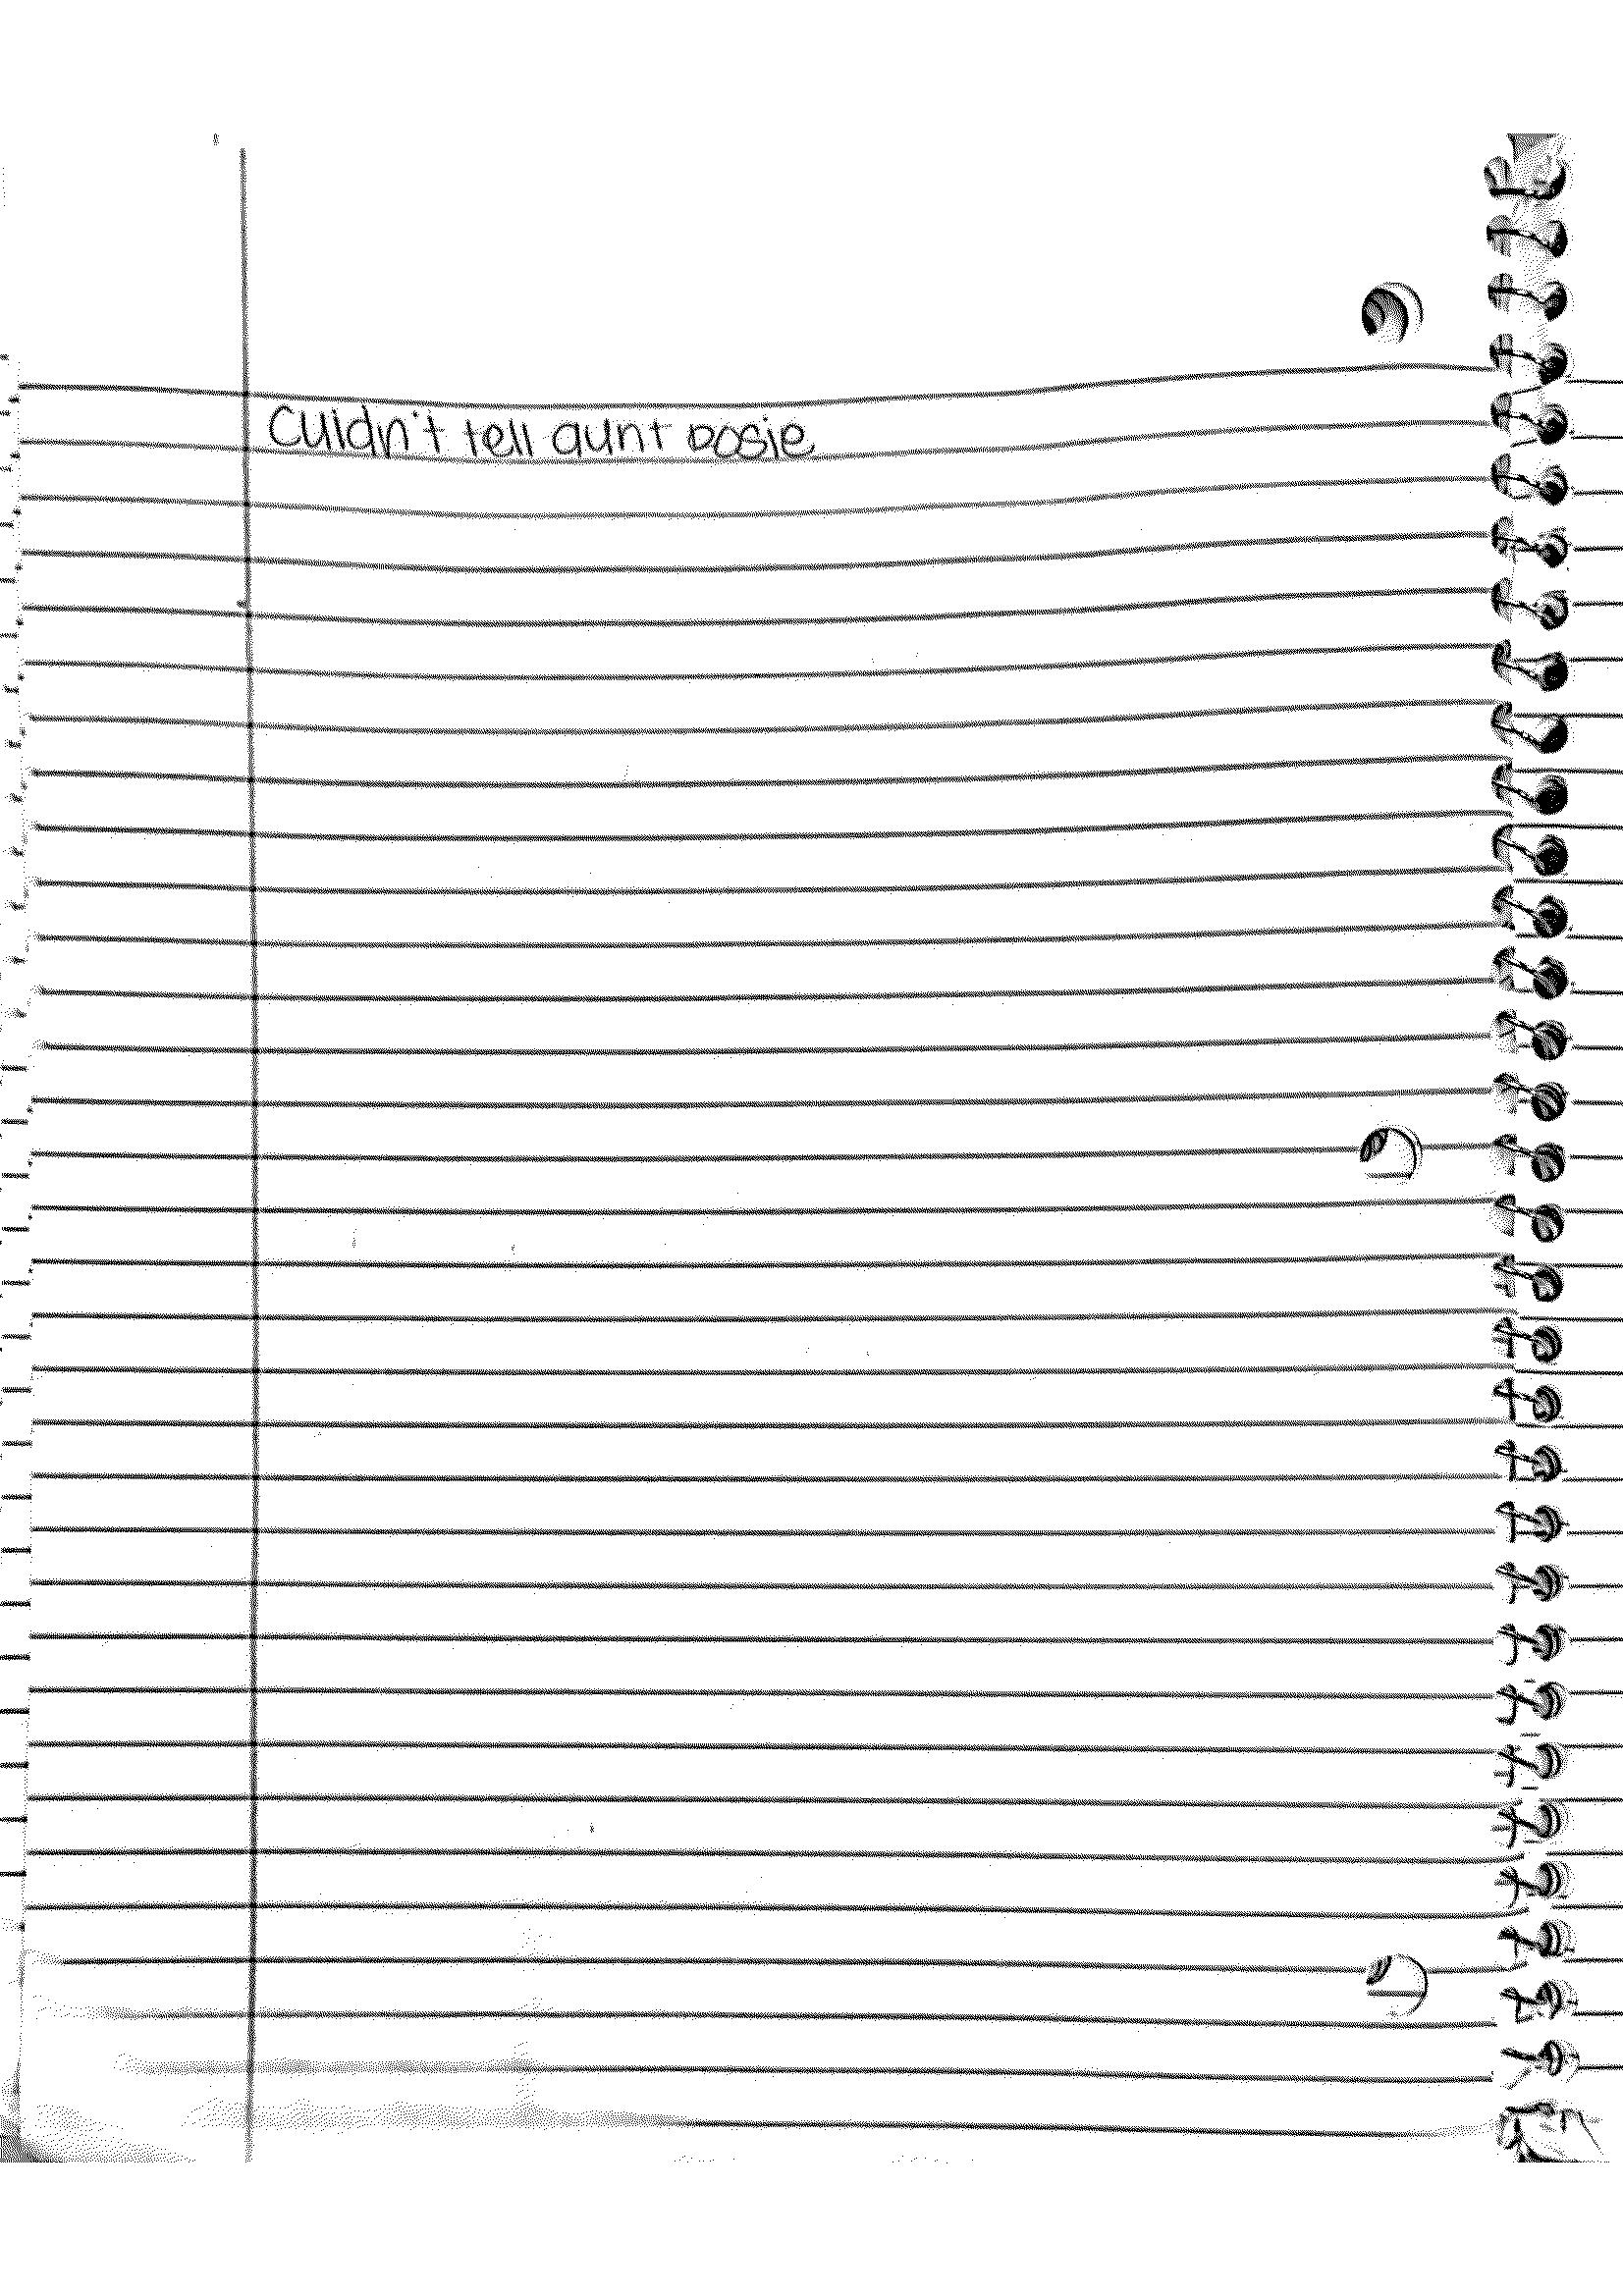 Culdn't tell aunt Dosie